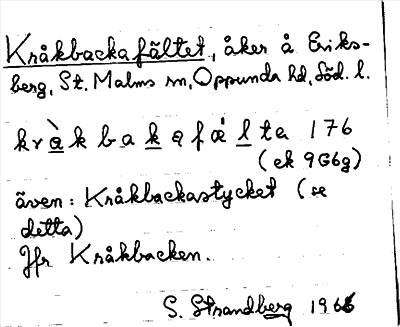 Kråkbackafältet, åker å Eriks-
berg, St. Malms sn, Oppunda hd, Söd. l.
kråkbakafälta 176
(ek 9G6g)
även: Kråkbackastycket (se
detta)
Jfr Kråkbacken.
S. Strandberg 1966